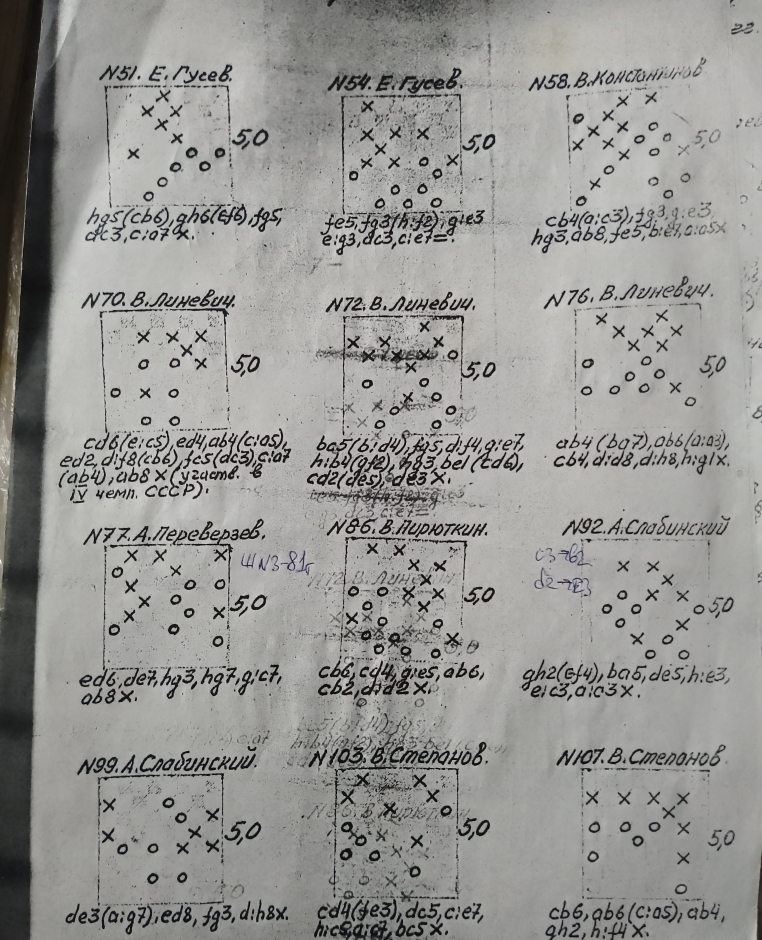 22.
N51. Е. Гусев.
5,0
hg5(cb6), gh6(ef6), fg5,
dc3, c:a7 x.
N54. Е. Гусев.
5,0
fe5, fg3(h:f2), g:e3
e:g3, dc3, c:e7=.
N58. В. Константинов
5,0
cb4(a:c3), fg3, g:e3,
hg3, ab8, fe5, b:e7, c:a5x
N70. В. Линевич.
5,0
cd6(e:c5), ed4, ab4(c:a5),
ed2, d:f8(cb6), fc5(dc3), c:a7
(ab4), ab8 x (участв. в
IV чемп. СССР).
N72. В. Линевич.
5,0
ba5(b:d4), fg5, d:f4, g:e7,
h:b4(gf2), hg3, be1(cd6),
cd2(de5), de3 x.
N76. В. Линевич.
5,0
ab4(ba7), ab6(a:a3),
cb4, d:d8, d:h8, h:g1x.
N77. А. Переверзев.
ШN3-81г
5,0
ed6, de7, hg3, hg7, g:c7,
ab8x.
N86. В. Пирюткин.
5,0
cb6, cd4, g:e5, ab6,
cb2, d:d2 x.
N92. А. Слабинский
c3→b2
d2→e3
5,0
gh2(ef4), ba5, de5, h:e3,
e:c3, a:c3x.
N99. А. Слабинский.
5,0
de3(a:g7), ed8, fg3, d:h8x.
N103. В. Степанов.
5,0
cd4(fe3), dc5, c:e7,
bc5 x.
N107. В. Степанов
5,0
cb6, ab6(c:a5), ab4,
gh2, h:f4 x.